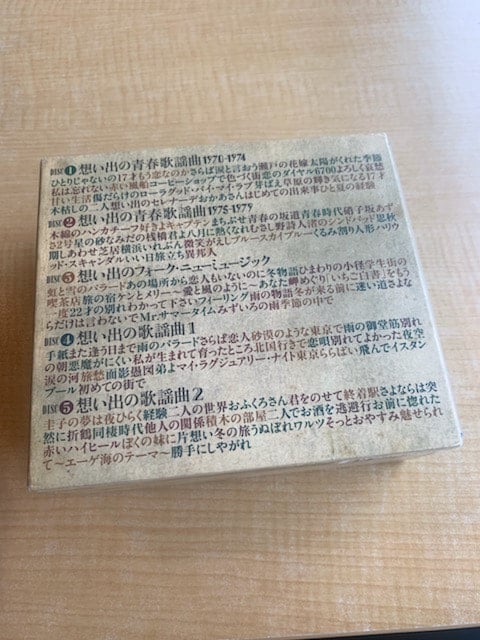 DISC 1 想い出の青春歌謡曲1970-1974
ひとりじゃないの17才もう恋なのかさらば涙と言おう瀬戸の花嫁太陽がくれた季節
私は忘れない赤い風船コーヒーショップで色づく街恋のダイヤル6700よろしく哀愁
甘い生活傷だらけのローラグッド・バイ・マイ・ラブ芽ばえ草原の輝き気になる17才
木枯しの二人想い出のセレナーデおかあさんはじめての出来事ひと夏の経験
DISC 2 想い出の青春歌謡曲1975-1979
木綿のハンカチーフ好きよキャプテンまちぶせ青春の坂道青春時代硝子坂あず
さ2号星の砂なみだの桟橋君よ八月に熱くなれむさし野詩人渚のシンドバッド思秋
期しあわせ芝居横浜いれぶん微笑がえしブルースカイブルーくるみ割り人形ハリウ
ッド・スキャンダルいい日旅立ち異邦人
DISC 3 想い出のフォーク・ニューミュージック
虹と雪のバラードあの場所から恋人もいないのに冬物語ひまわりの小径学生街の
喫茶店旅の宿ケンとメリー〜愛と風のように〜あなた岬めぐり「いちご白書」をもう
一度22才の別れわかって下さいフィーリング雨の物語冬が来る前に迷い道さよな
らだけは言わないでMr.サマータイムみずいろの雨季節の中で
DISC 4 想い出の歌謡曲1
手紙また逢う日まで雨のバラードさらば恋人砂漠のような東京で雨の御堂筋別れ
の朝悪魔がにくい私が生まれて育ったところ北国行きで恋唄別れてよかった夜空
涙の河旅愁面影愚図弟よマイ・ラグジュアリー・ナイト東京ららばい飛んでイスタン
ブール初めての街で
DISC 5 想い出の歌謡曲2
圭子の夢は夜ひらく経験二人の世界おふくろさん君をのせて終着駅さよならは突
然に折鶴同棲時代他人の関係積木の部屋二人でお酒を逃避行お前に惚れた
赤いハイヒールぼくの妹に片想い冬の旅うぬぼれワルツそっとおやすみ魅せられ
て〜エーゲ海のテーマ〜勝手にしやがれ